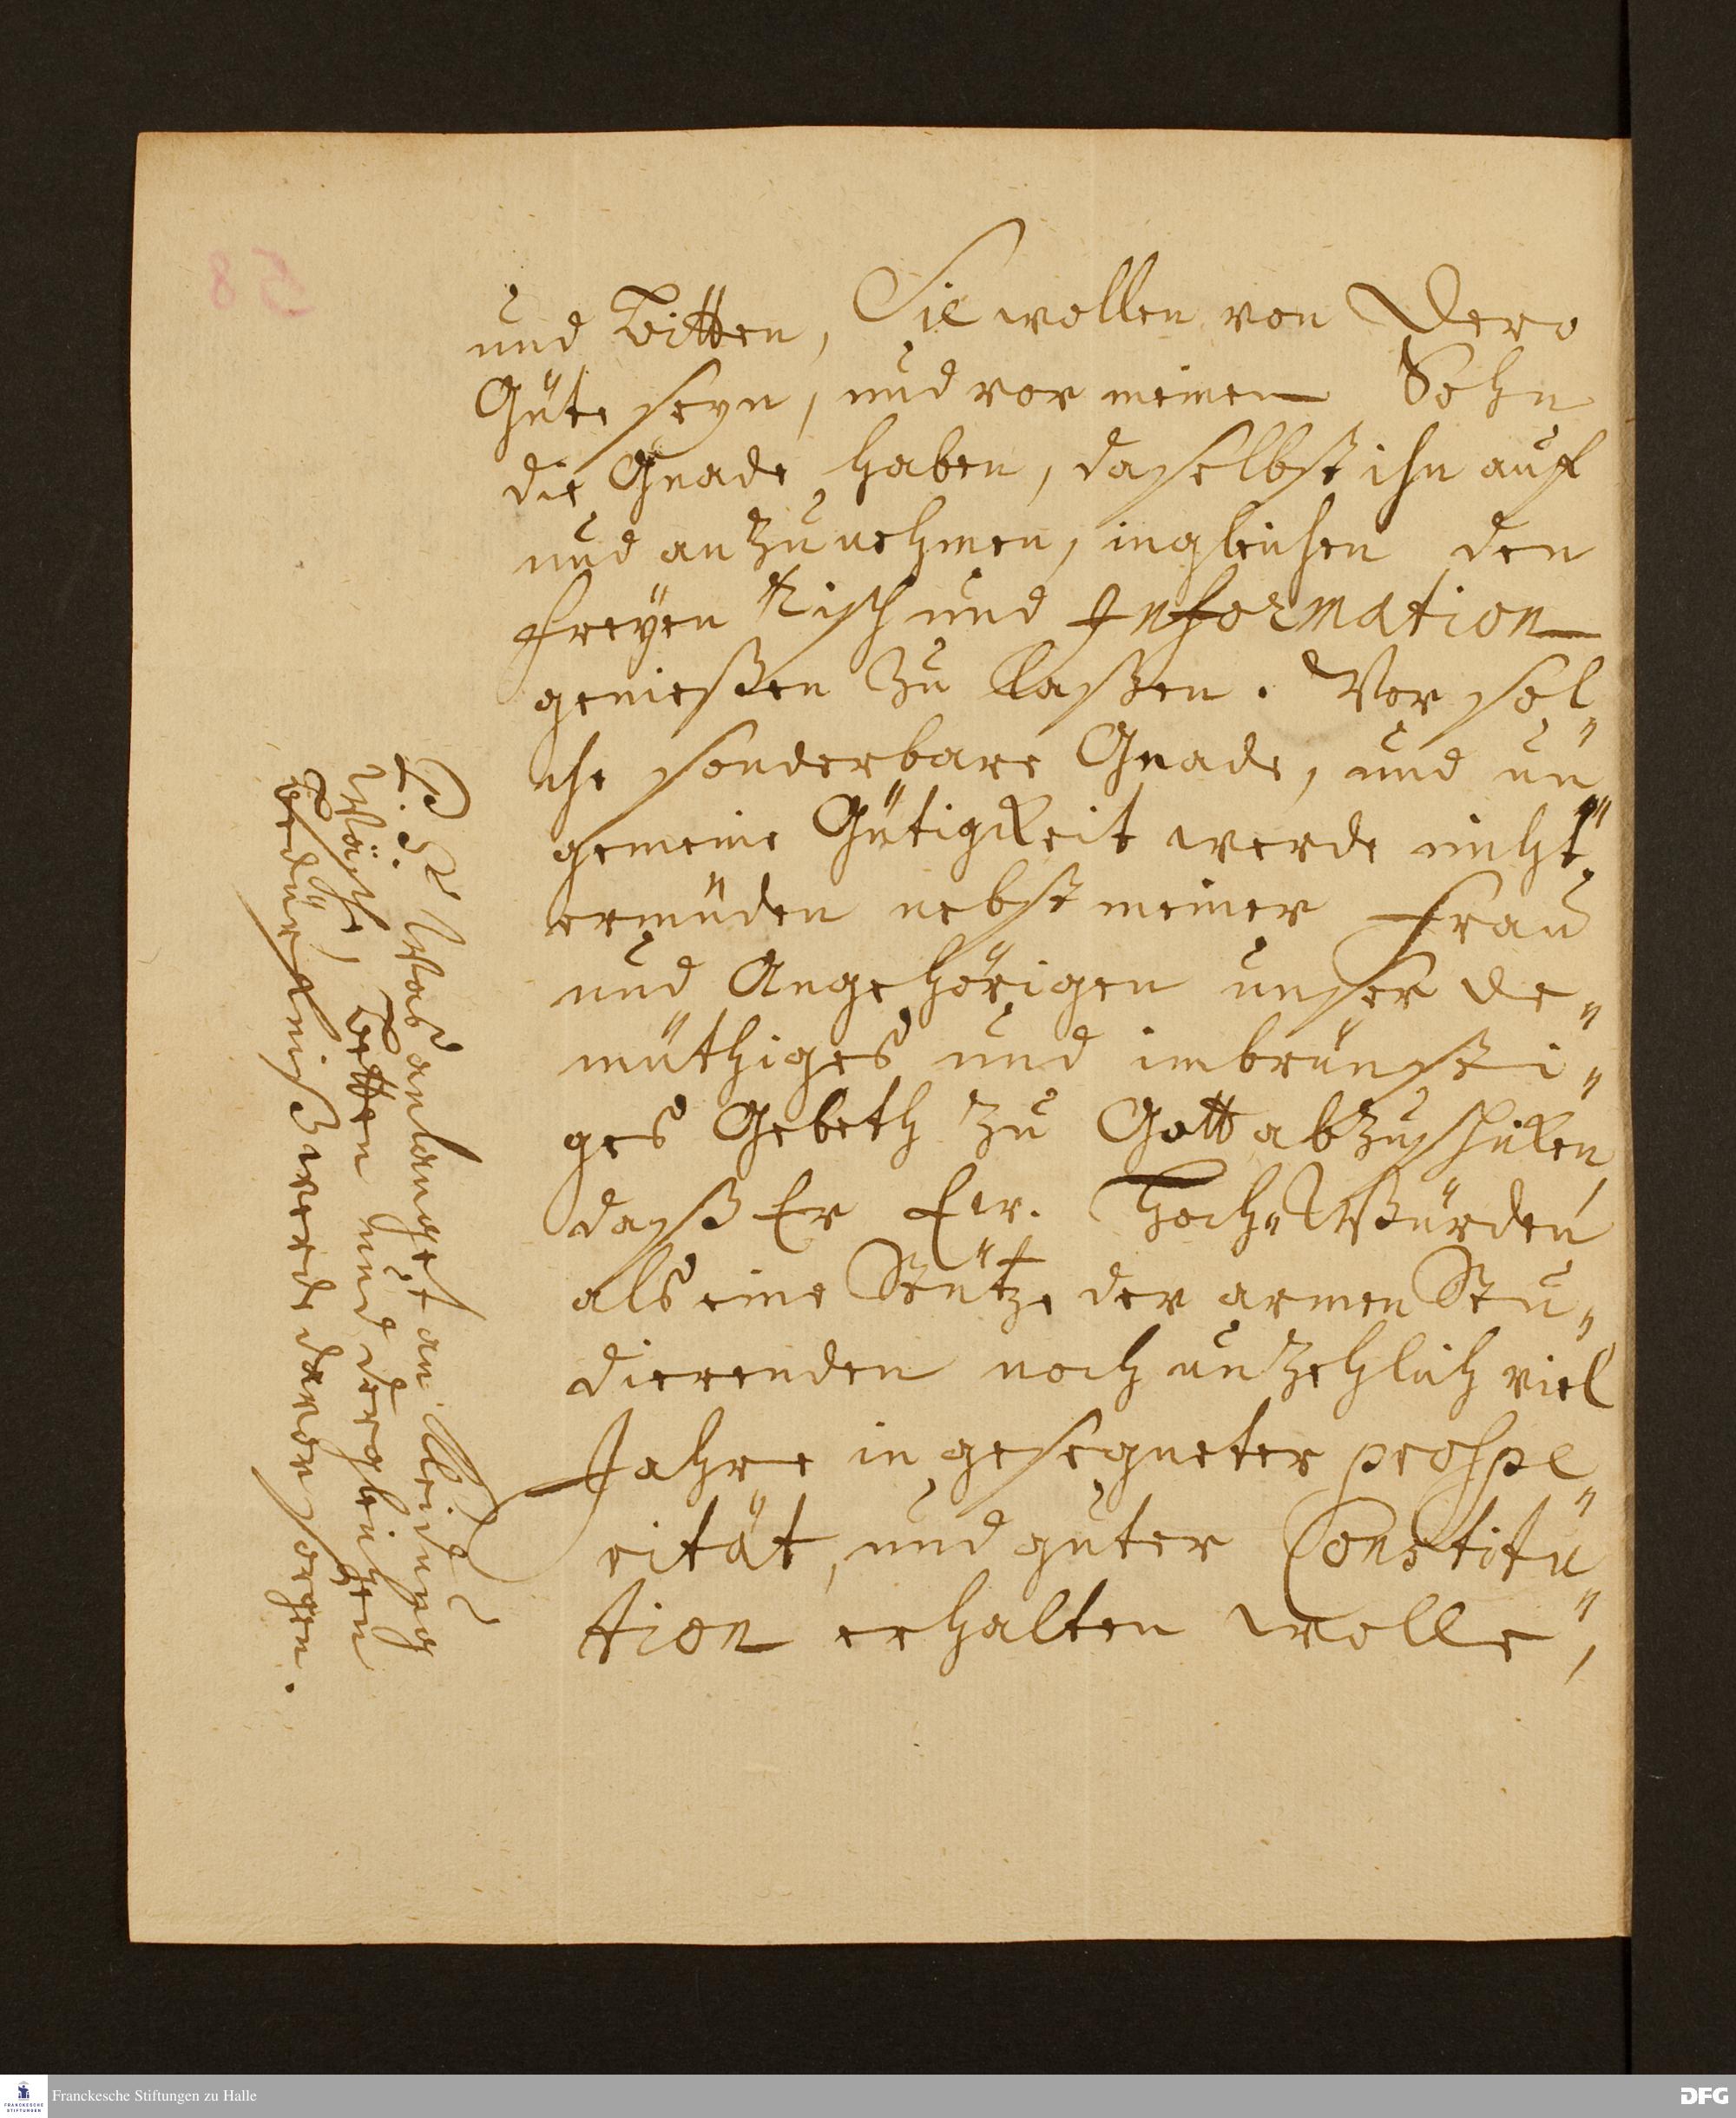 und bitten, Sie wollen von Dero
Güte seyn, und vor meinen Sohn
die Gnade haben, daselbst ihn auf
und anzunehmen, ingleichen den
freyen Tisch und Information
genießen zu laßen. Vor sol„
che sonderbare Gnade, und un„
gemeine Gütigkeit werde nicht
ermüden nebst meiner Frau
und Angehörigen unser de„
müthiges und inbrünsti„
ges Gebeth zu Gott abzuschicken,
daß Er Ew. Hoch„Würden
als eine Stütze der armen Stu„
dierenden noch unzehlich viel
Jahre in gesegneter prospe„
rität, und guter Constitu„
tion erhalten wolle,
P.S. Was anlanget an Kleidung
Wäsche, Betten und dergleichen
Bedürfniß werde davor sorgen.
58
Franckesche Stiftungen zu Halle
FRANCKESCHE
STIFTUNGEN
DFG